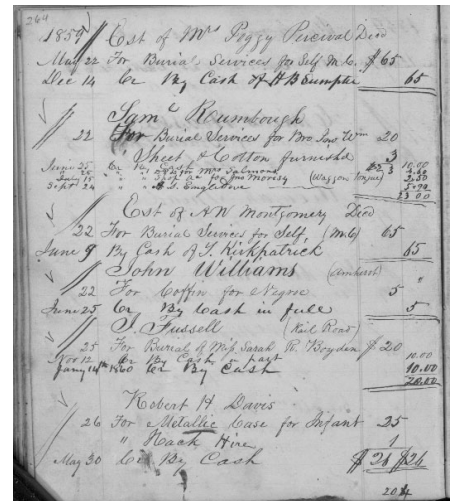 264
1859 Est of Mrs Peggy Percival Decd
May 22 For Burial Services for Self M.C. $65
Dec 14 Cr By Cash of H B Sumpter 65
Saml Roumbough
22 For Burial Services for Bro Wm 20
Sheet & Cotton furnished 3
June 25 Cr By Cash 10.00
" " Mrs Salmond
July 15 (Waggon tongue) 2.50
Sept 24 " S. Engledove 5.90
23 00
Est of A W Montgomery Decd
22 For Burial Services for Self (M.C) 65
June 9 By Cash of T. Kirkpatrick 65
John Williams (Amherst) "
22 For Coffin for Negroe 5
June 25 Cr By Cash in full 5
T. Fussell (Rail Road)
25 For Burial of Miss Sarah R. Boyden $20
Nov 12 Cr By Cash in part 10.00
Jany 14th 1860 Cr By Cash 10.00
20.00
Robert H Davis
26 For Metallic Case for Infant 25
" Hack Hire 1
May 30 Cr By Cash $26 $26
204